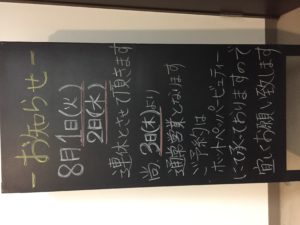 ーお知らせー
8月1日(火)
2日(水)
連休とさせて頂きます
尚、3日(木)より
通常営業となります
ご予約は
ホットペッパービューティー
にて承っておりますので
宜しくお願い致します